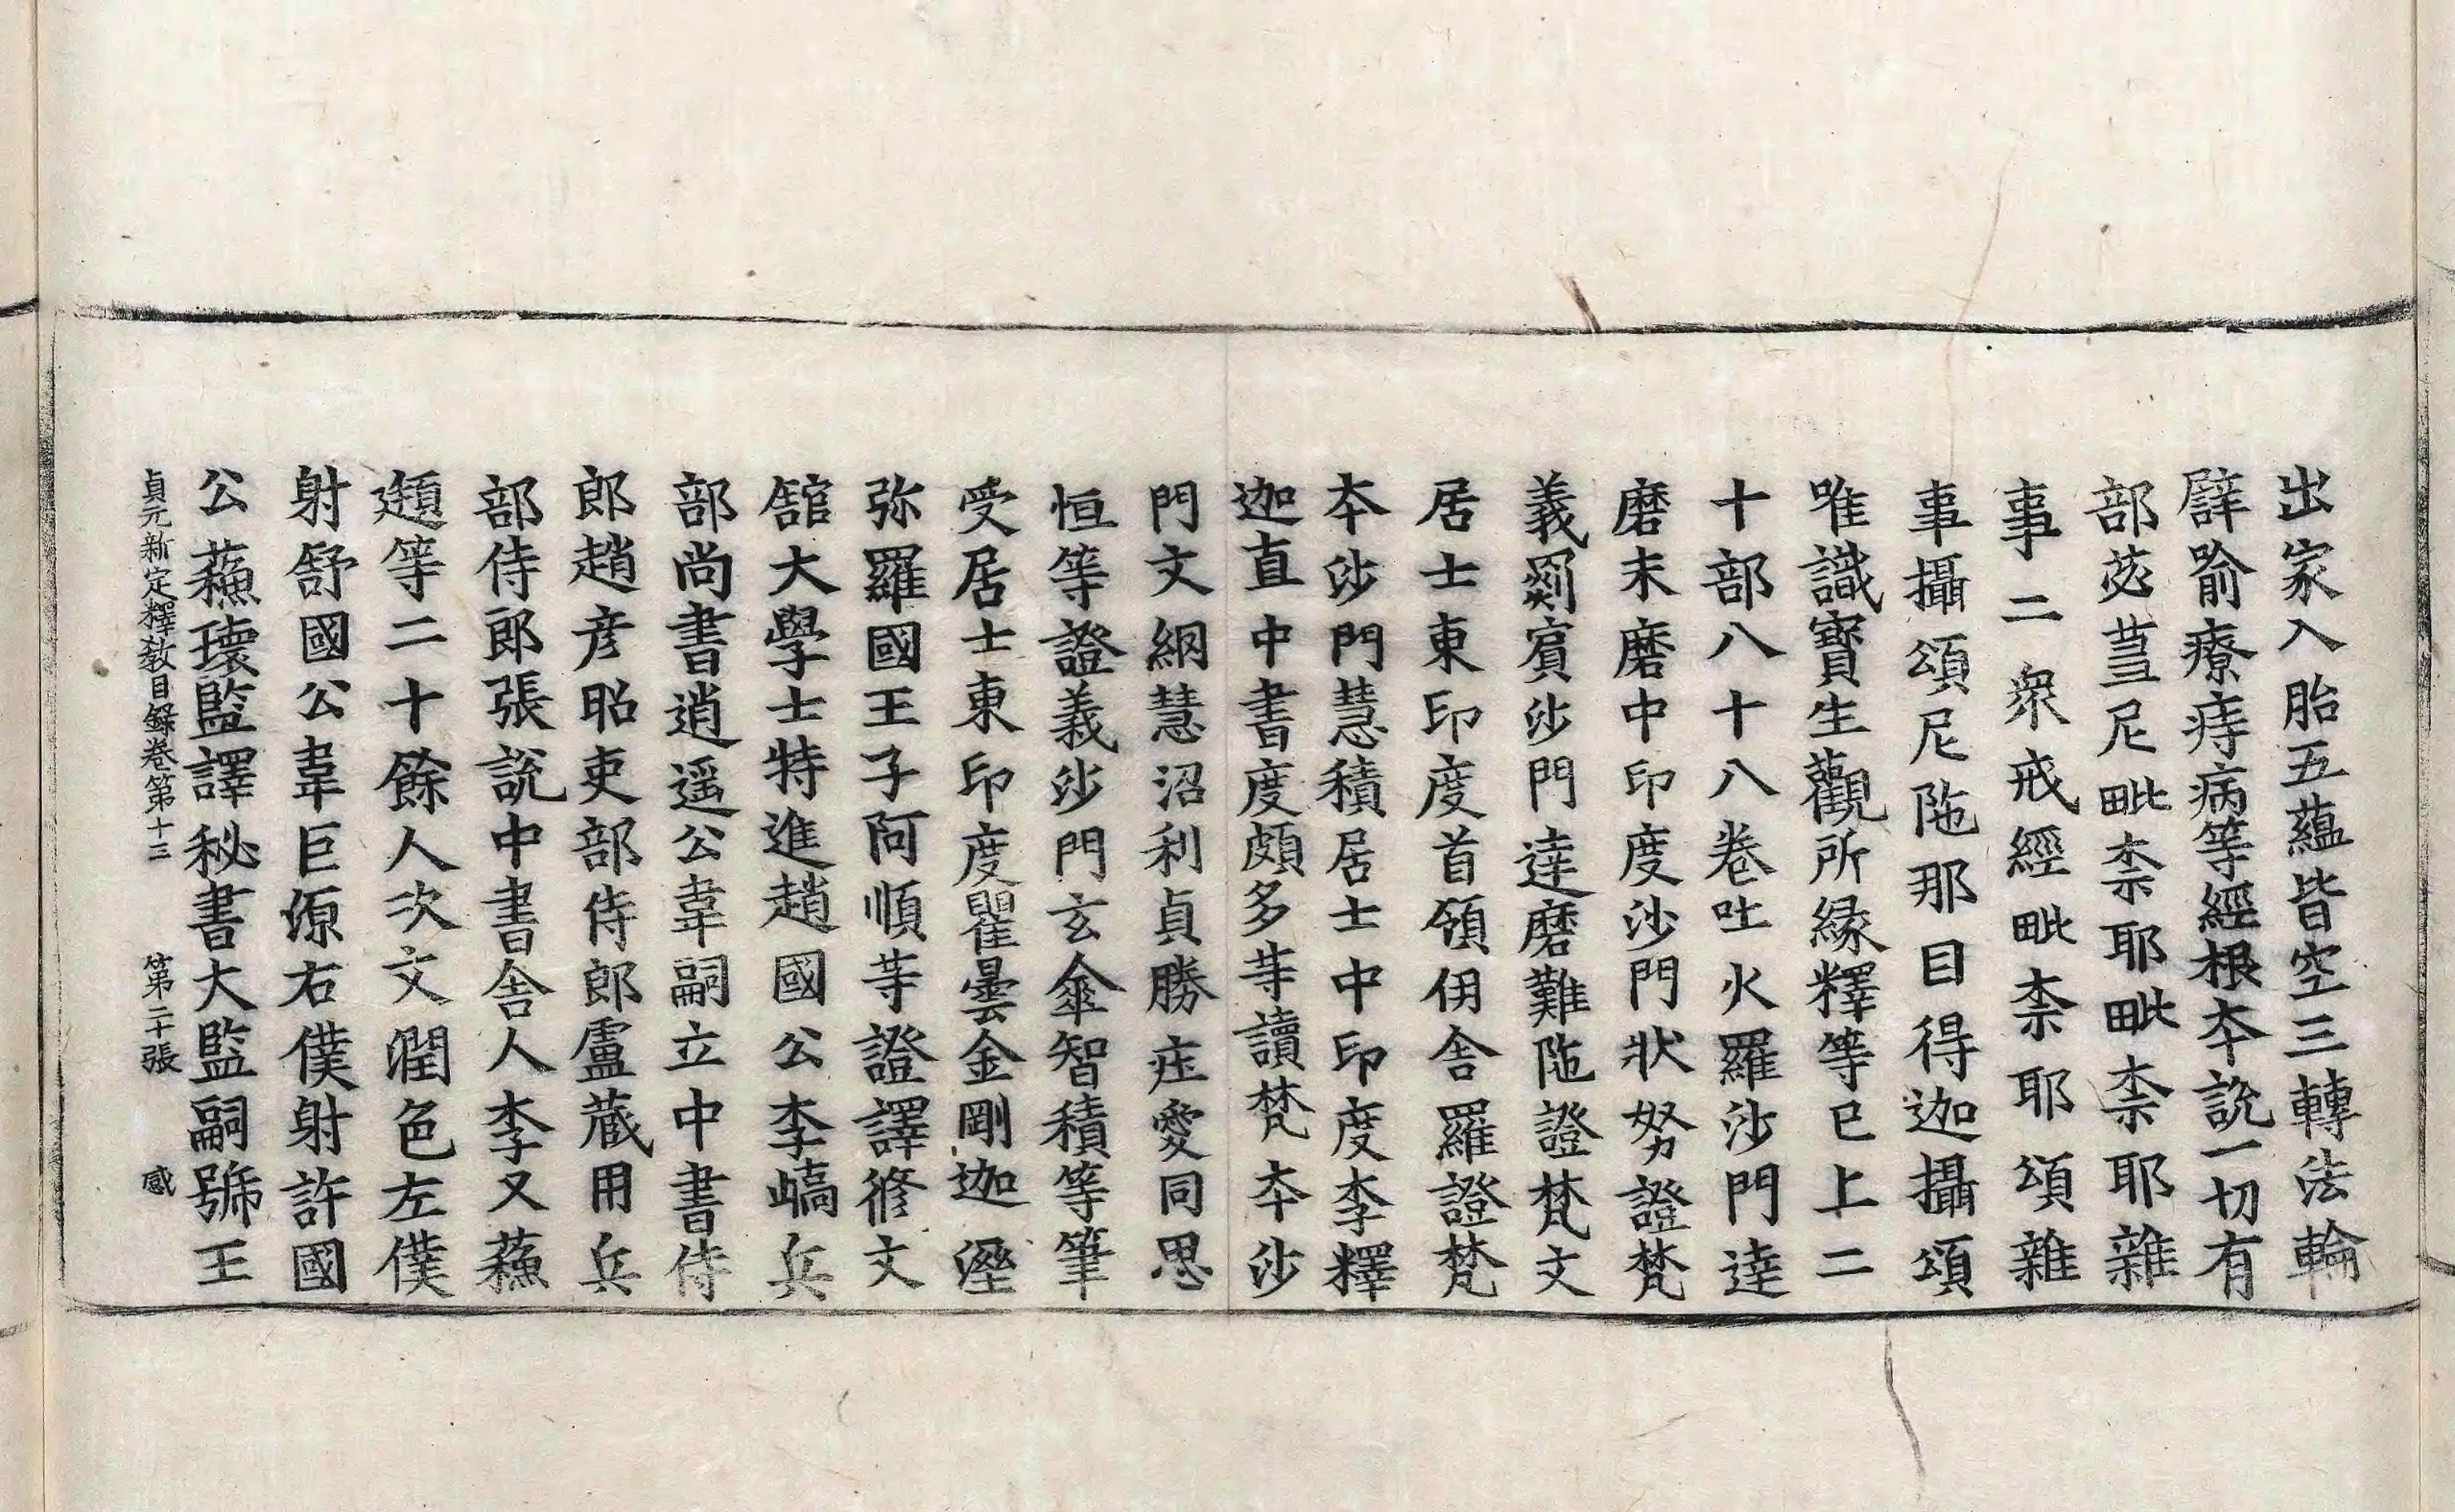 出家入胎五蘊皆空三轉法輪
譬喻療痔病等經根夲說一切有
部苾蒭尼毗柰耶毗柰耶雜
事二衆戒經毗柰耶頌雜
事攝頌尼陁那目得迦攝頌
唯識寶生觀所緣釋等已上二
十部八十八卷吐火羅沙門達
磨末磨中印度沙門狀弩證梵
義罽賓沙門達磨難陁證梵文
居士東印度首領伊舍羅證梵
夲沙門慧積居士中印度李釋
迦直中書度頗多等讀梵夲沙
門文綱慧沼利貞勝庄愛同思
恒等證義沙門玄傘智積等筆
受居士東印度瞿曇金剛迦溼
弥羅國王子阿順等證譯修文
舘大學士特進趙國公李嶠兵
部尚書逍遥公韋嗣立中書侍
郎趙彦昭吏部侍郎盧藏用兵
部侍郎張說中書舍人李乂蘓
頲等二十餘人次文潤色左僕
射舒國公韋巨源右僕射許國
公蘓瓌監譯秘書大監嗣號王
貞元新定釋敎目錄卷第十三 第二十張 感